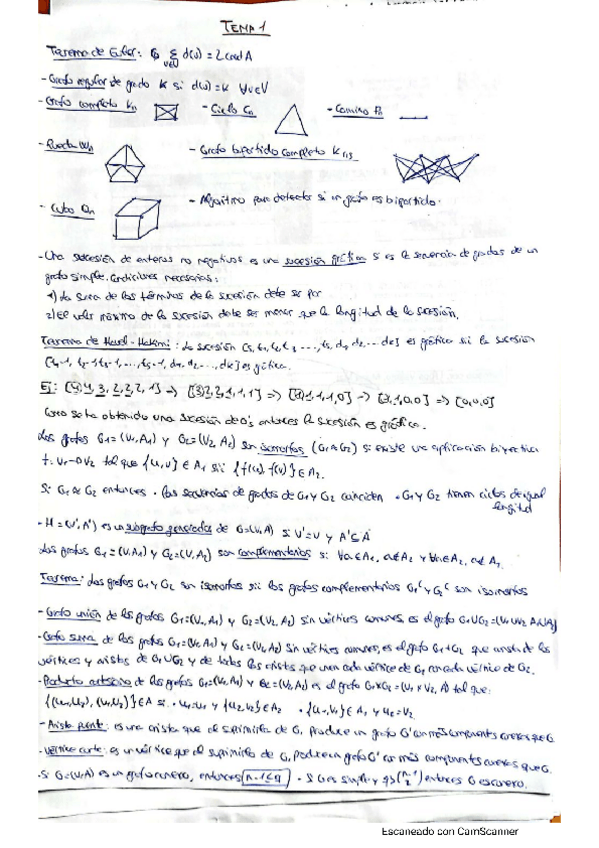 TEMA 1
Teorema de Euler: Σ d(v) = 2 card A
v∈V
- Grafo regular de grado K si d(v)=K ∀v∈V
- Grafo completo Kn - Ciclo Cn - Camino Pn
- Rueda Wn - Grafo bipartido completo K
- Cubo Qn - Algoritmo para detectar si un grafo es bipartido.
- Una sucesión de enteros no negativos es una sucesión gráfica si es la secuencia de grados de un
grafo simple. Condiciones necesarias:
1) La suma de los términos de la sucesión debe ser par
2) El valor máximo de la sucesión debe ser menor que la longitud de la sucesión.
Teorema de Havel-Hakimi: La sucesión es gráfica sii la sucesión
es gráfica.
Ej: [4,4,3,2,2,2,1] => [3,2,1,1,1] => [0,0,0]
Como se ha obtenido una sucesión de 0's entonces la sucesión es gráfica.
Los grafos G1=(V1,A1) y G2=(V2,A2) son isomorfos (G1≈G2) si existe una aplicación biyectiva
f: V1→V2 tal que {u,v}∈A1 sii {f(u),f(v)}∈A2.
Si G1≈G2 entonces · Las secuencias de grados de G1 y G2 coinciden · G1 y G2 tienen ciclos de igual
longitud
- H=(V',A') es un subgrafo generador de G=(V,A) si V'=V y A'⊆A
Los grafos G1=(V,A1) y G2=(V,A2) son complementarios si ∀a∈A1, a∉A2 y ∀a∈A2, a∉A1
Teorema: Los grafos G1 y G2 son isomorfos sii los grafos complementarios G1ᶜ y G2ᶜ son isomorfos
- Grafo unión de los grafos G1=(V1,A1) y G2=(V2,A2) sin vértices comunes, es el grafo G1∪G2=(V1∪V2, A1∪A2)
- Grafo suma de los grafos G1=(V1,A1) y G2=(V2,A2) sin vértices comunes, es el grafo G1+G2 que consta de los
vértices y aristas de G1∪G2 y de todas las aristas que unen cada vértice de G1 con cada vértice de G2.
- Producto cartesiano de los grafos G1=(V1,A1) y G2=(V2,A2) es el grafo G1×G2=(V1×V2, A) tal que:
{(u1,u2),(v1,v2)}∈A si · u1=v1 y {u2,v2}∈A2 · {u1,v1}∈A1 y u2=v2
- Arista puente: es una arista que al suprimirla de G, produce un grafo G' con más componentes conexas que G.
- Vértice corte: es un vértice que al suprimirlo de G, produce un grafo G' con más componentes conexas que G.
· Si G=(V,A) es un grafo conexo, entonces n-1≤q · Si G es simple y q> entonces G es conexo.
Escaneado con CamScanner